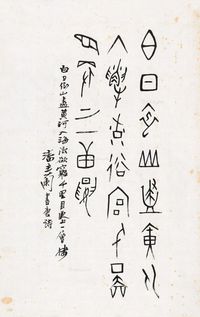 白日依山盡黃河
入海流欲窮千里
目更上一層樓
白日依山盡黃河入海流欲窮千里目更上一層樓
潘主蘭書唐詩